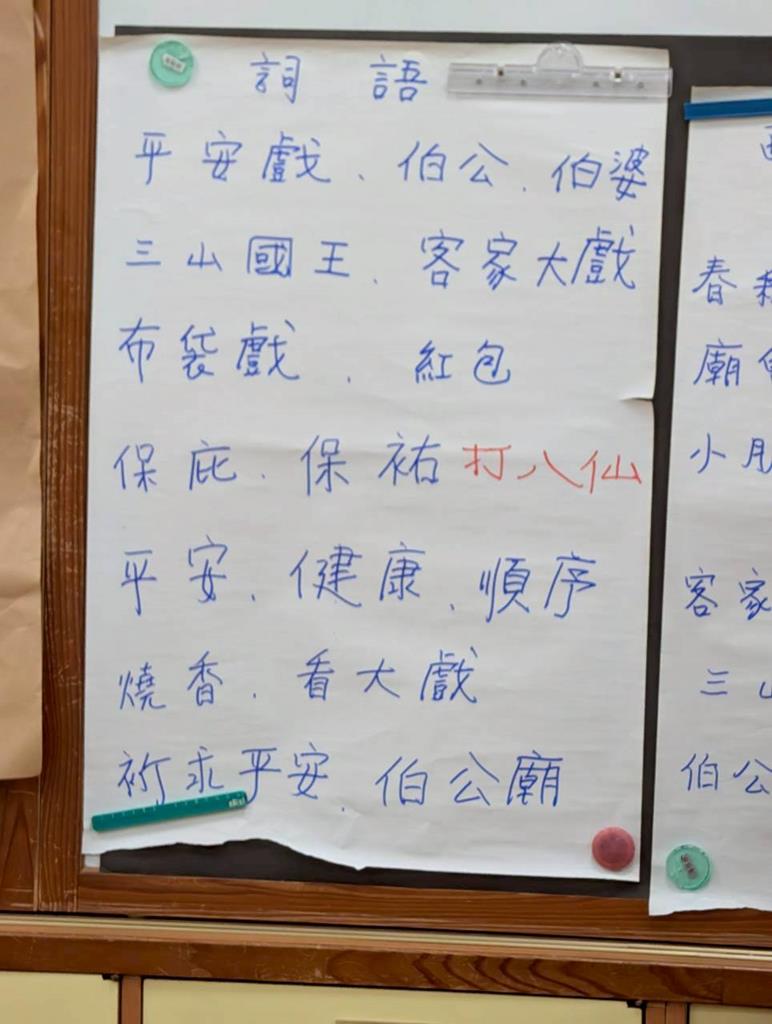 詞 語
平安戲、伯公、伯婆
三山國王、客家大戲
布袋戲、紅包
保庇、保祐 打八仙
平安、健康、順序
燒香、看大戲
祈求平安、伯公廟
春
廟
小朋
客家
三山
伯公